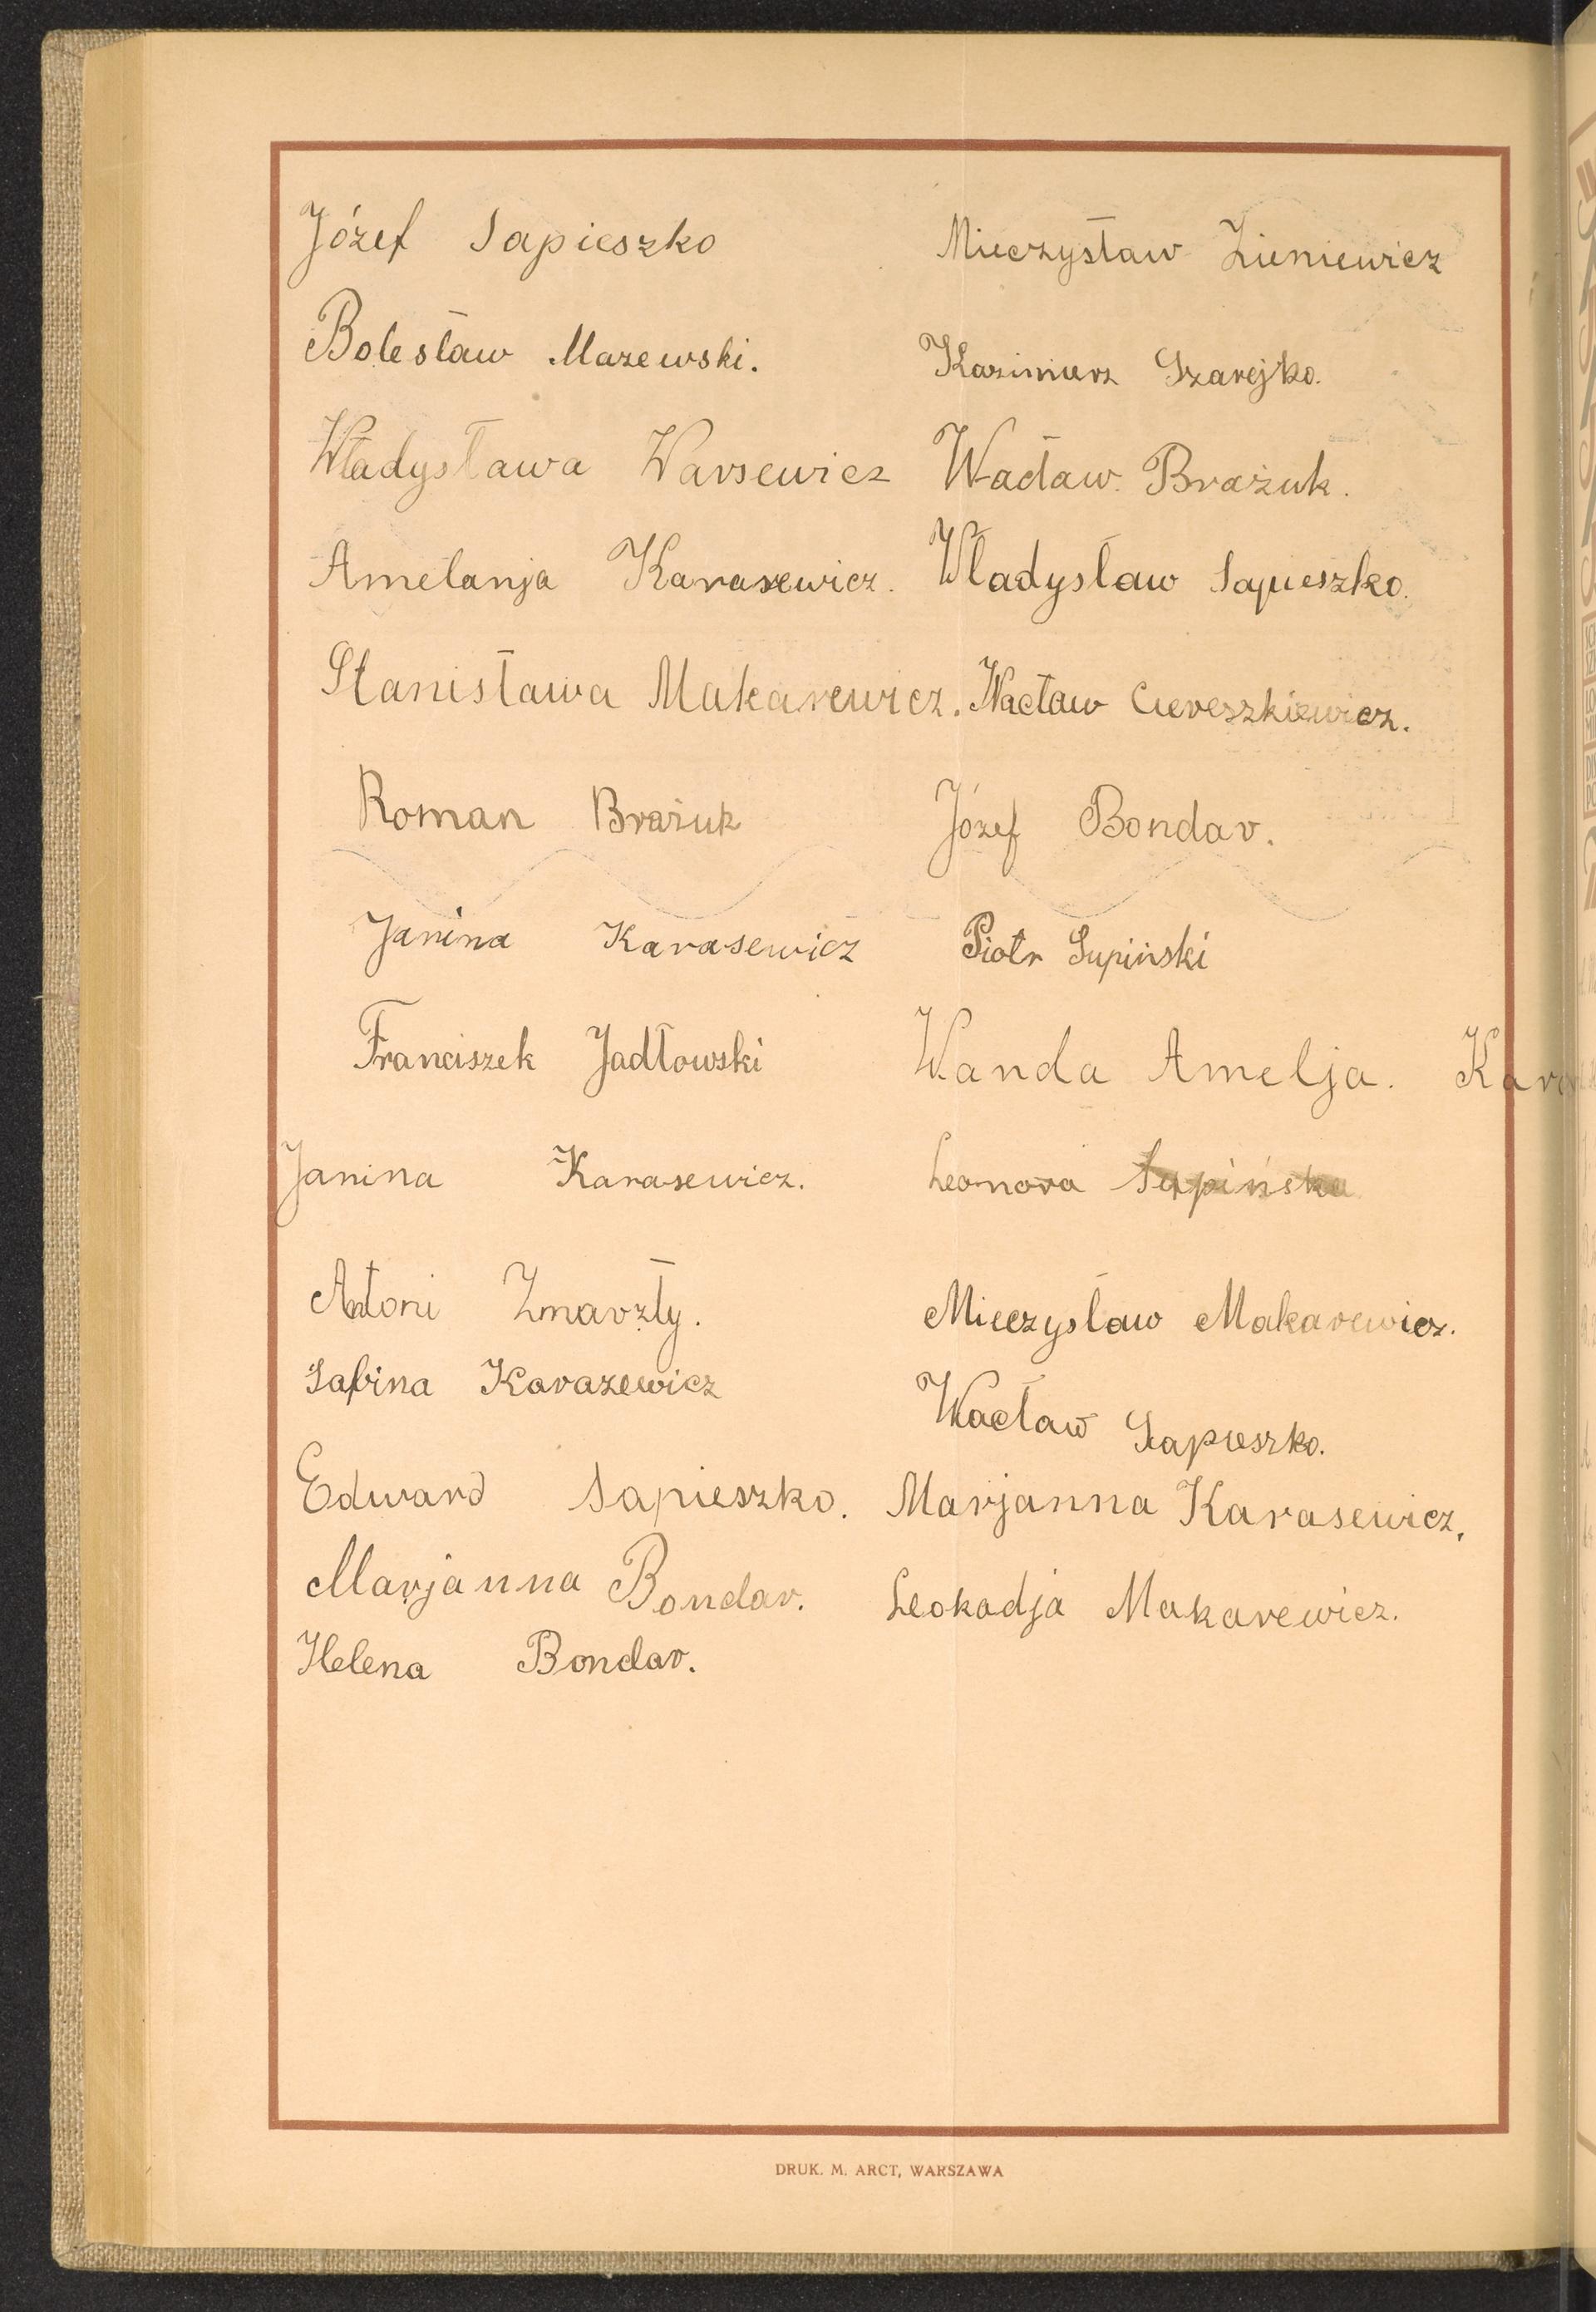 Józef Sapieszko
Bolesław Mazewski.
Władysława Warsewicz
Amelanja Karasewicz.
Stanisława Makarewicz.
Roman Brażuk
Janina Karasewicz
Franciszek Jadłowski
Janina Karasewicz.
Antoni Zmarzły.
Sabina Karazewicz
Edward Sapieszko.
Marjanna Bondar.
Helena Bondar.
Mieczysław Zieniewicz
Kazimierz Szarejko.
Wacław Brażuk.
Władysław Sapieszko.
Wacław Ciereszkiewicz.
Józef Bondar.
Piotr Supiński
Wanda Amelja.
Leonora Supińska
Mieczysław Makarewicz.
Wacław Sapieszko.
Marjanna Karasewicz.
Leokadja Makarewicz.
DRUK. M. ARCT, WARSZAWA